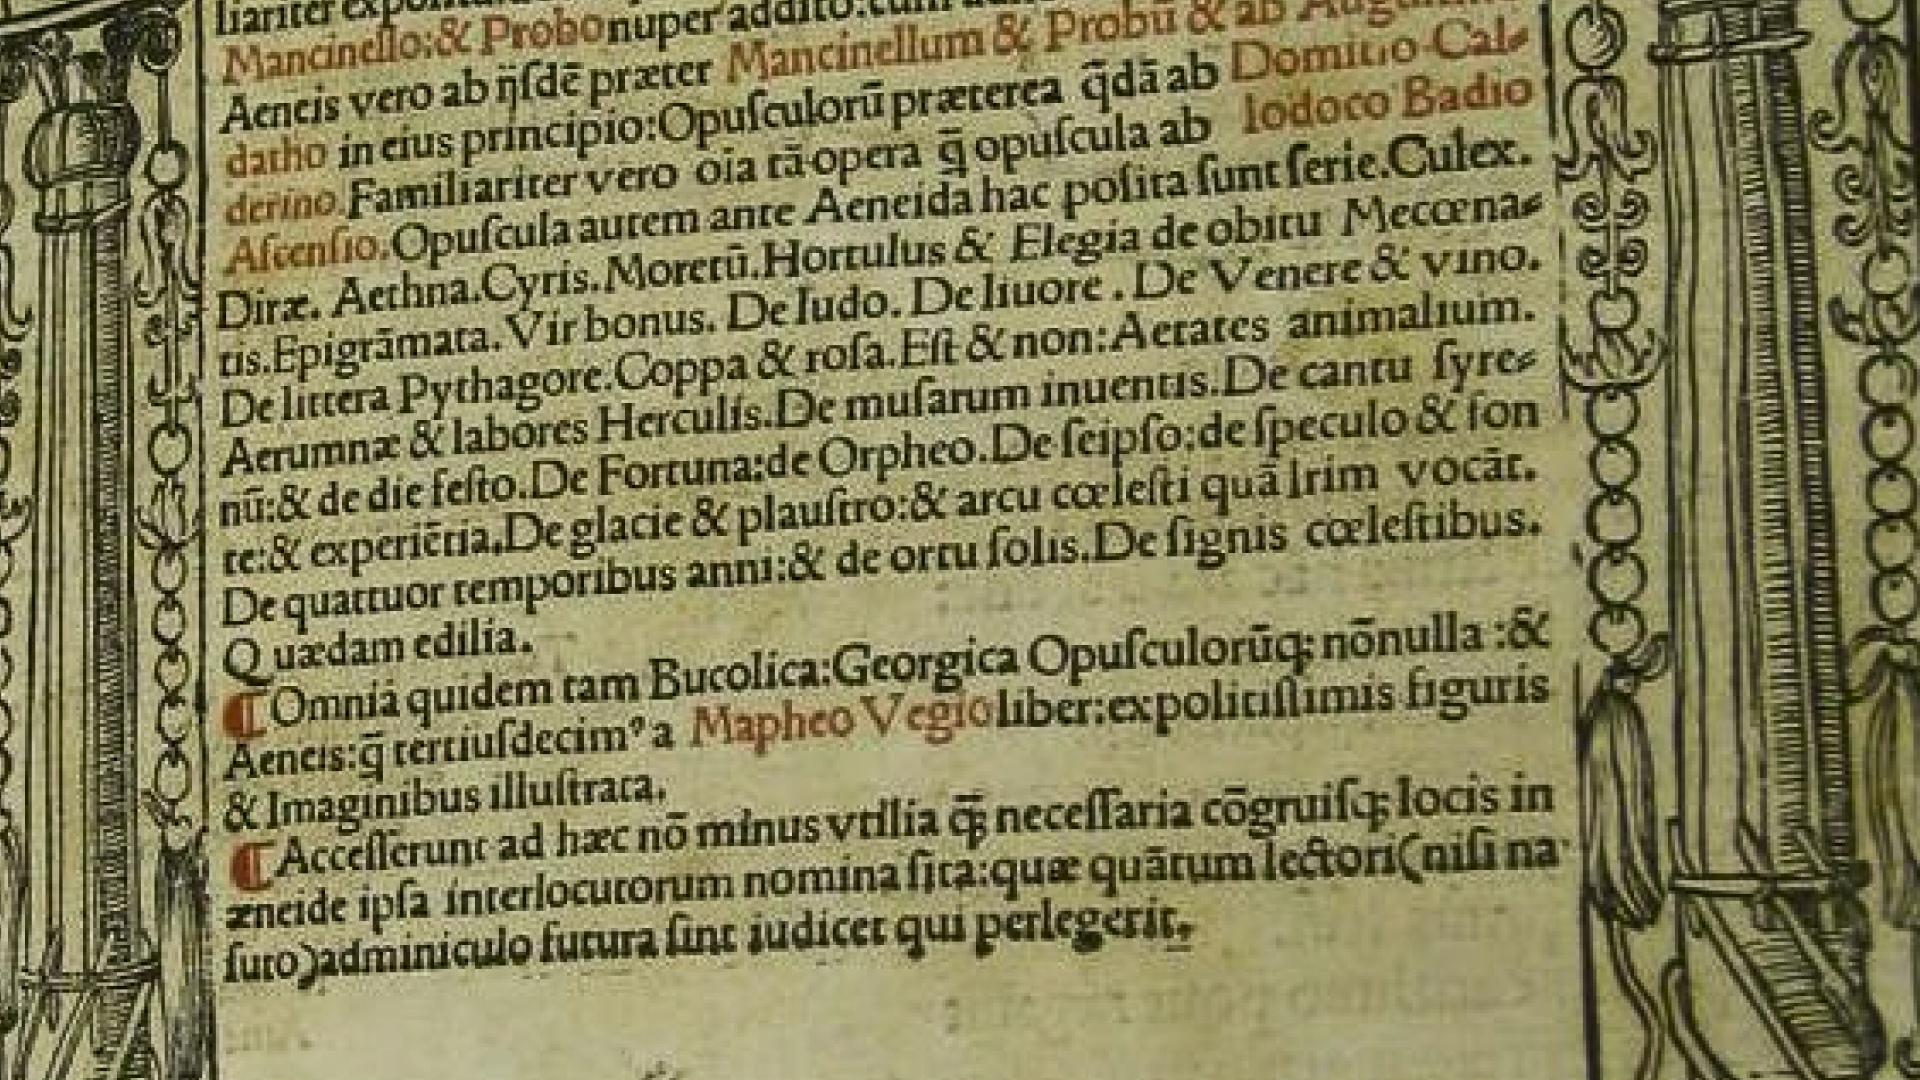 liariter
Mancinello:& Probo nuper addito:cum
Aeneis vero ab ijſdē præter Mancinellum & Probū & ab
datho in eius principio:Opuſculorū præterea q̄dā ab Domitio Cal⸗
derino.Familiariter vero oīa tā opera q̄ opuſcula ab Iodoco Badio
Aſcenſio.Opuſcula autem ante Aeneida hac poſita ſunt ſerie.Culex.
Diræ. Aethna.Cyris.Moretū.Hortulus & Elegia de obitu Mecœna⸗
tis.Epigrāmata.Vir bonus. De ludo. De liuore . De Venere & vino.
De littera Pythagore.Coppa & roſa.Eſt & non:Aetates animalium.
Aerumnæ & labores Herculis.De muſarum inuentis.De cantu ſyre⸗
nū:& de die feſto.De Fortuna:de Orpheo.De ſeipſo:de ſpeculo & fon
te:& experiētia.De glacie & plauſtro:& arcu cœleſti quā Irim vocāt.
De quattuor temporibus anni:& de ortu ſolis.De ſignis cœleſtibus.
Quædam edilia.
¶Omnia quidem tam Bucolica:Georgica Opuſculorūq; nōnulla :&
Aeneis:q̄ tertiuſdecimꝰ a Mapheo Vegio liber:expolitiſſimis figuris
& Imaginibus illuſtrata.
¶Acceſſerunt ad hæc nō minus vtilia q̄ꝫ neceſſaria cōgruiſq; locis in
æneide ipſa interlocutorum nomina ſita:quæ quātum lectori(niſi na
ſuto)adminiculo futura ſint iudicet qui perlegerit.